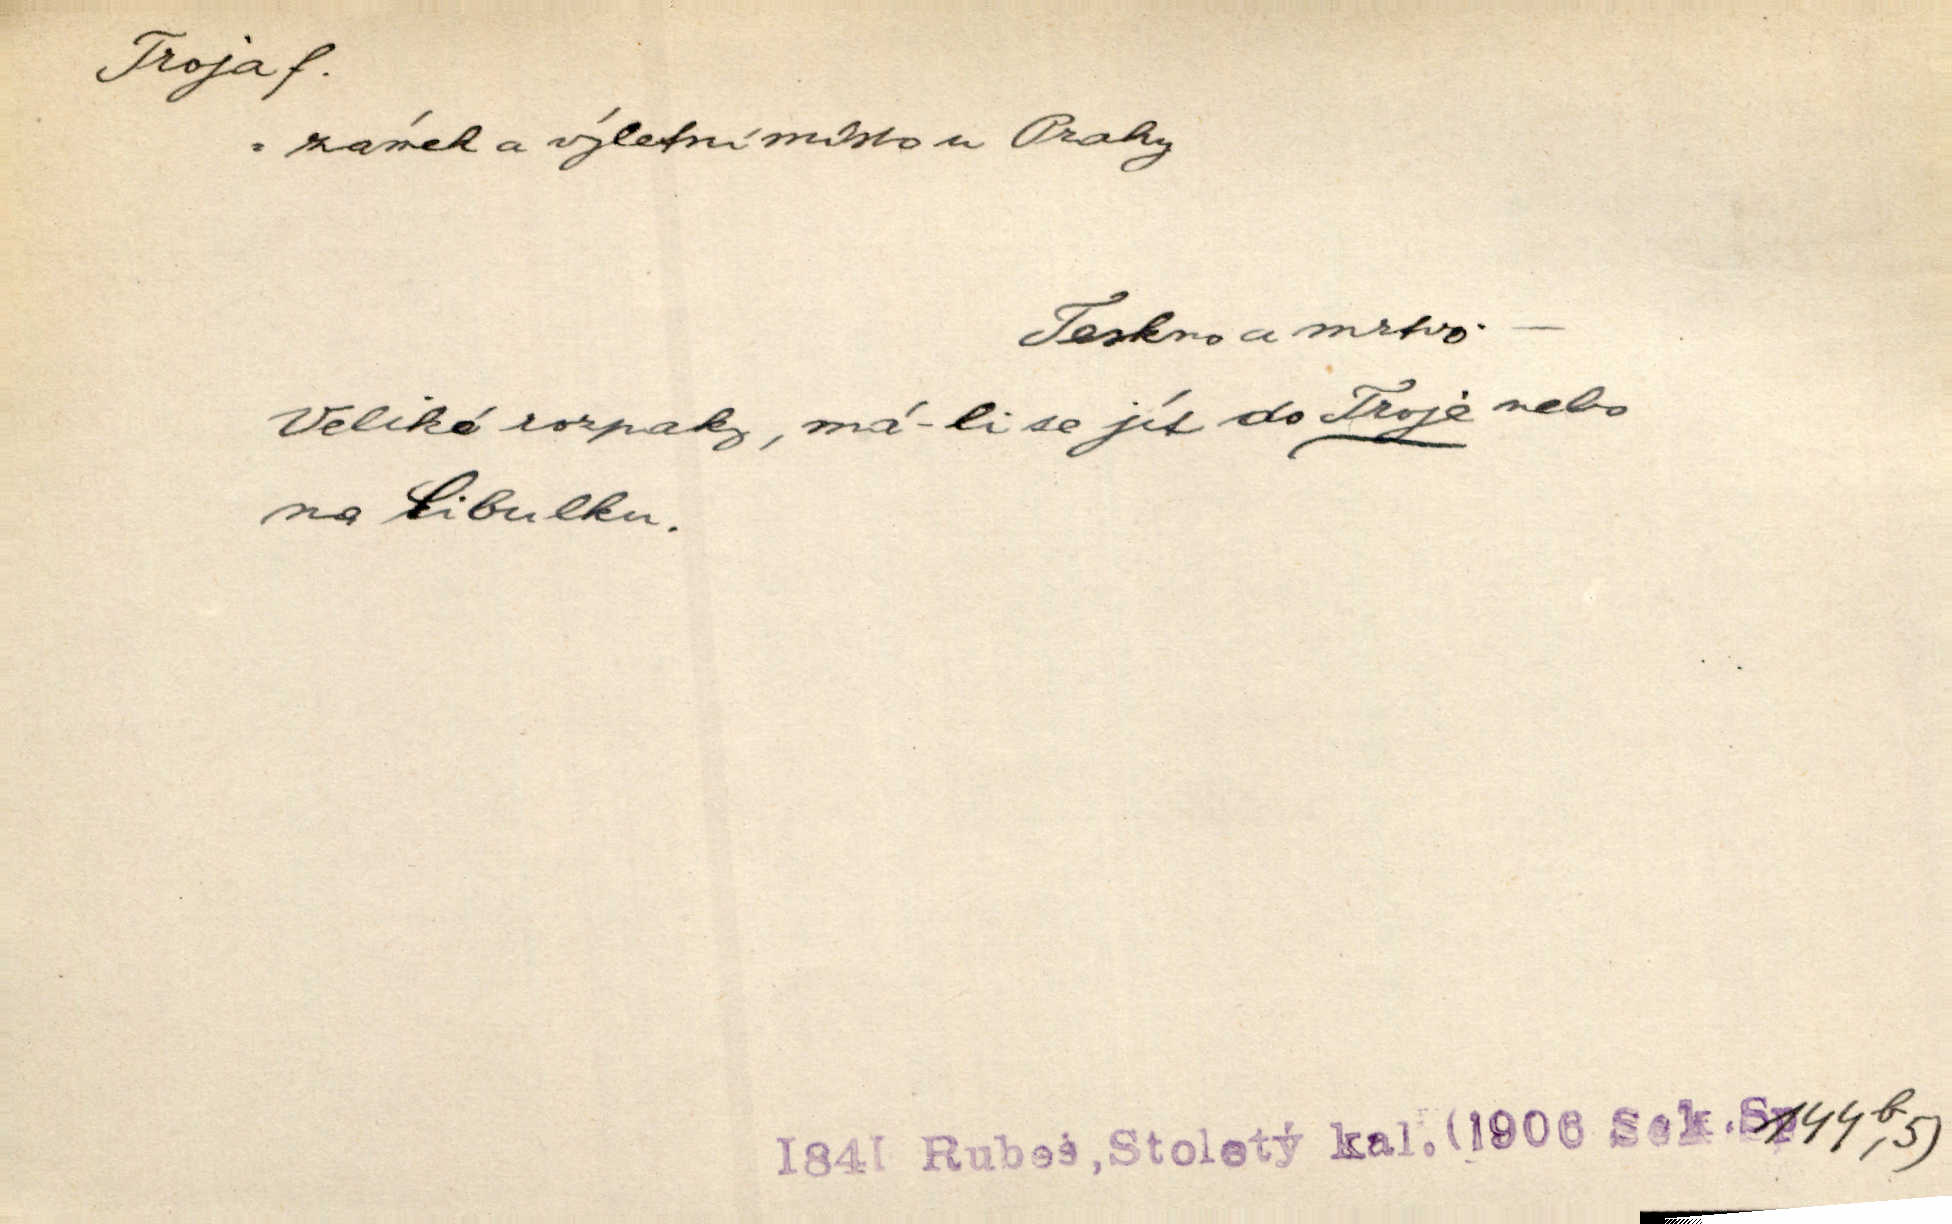 Troja f.
= zámek a výletní místo u Prahy
Teskno a mrtvo. —
Veliké rozpaky, má-li se jít do Troje nebo
na Cibulku.
1841 Rubeš, Stoletý kal. (1906 Sek. Sp 144b, 5)